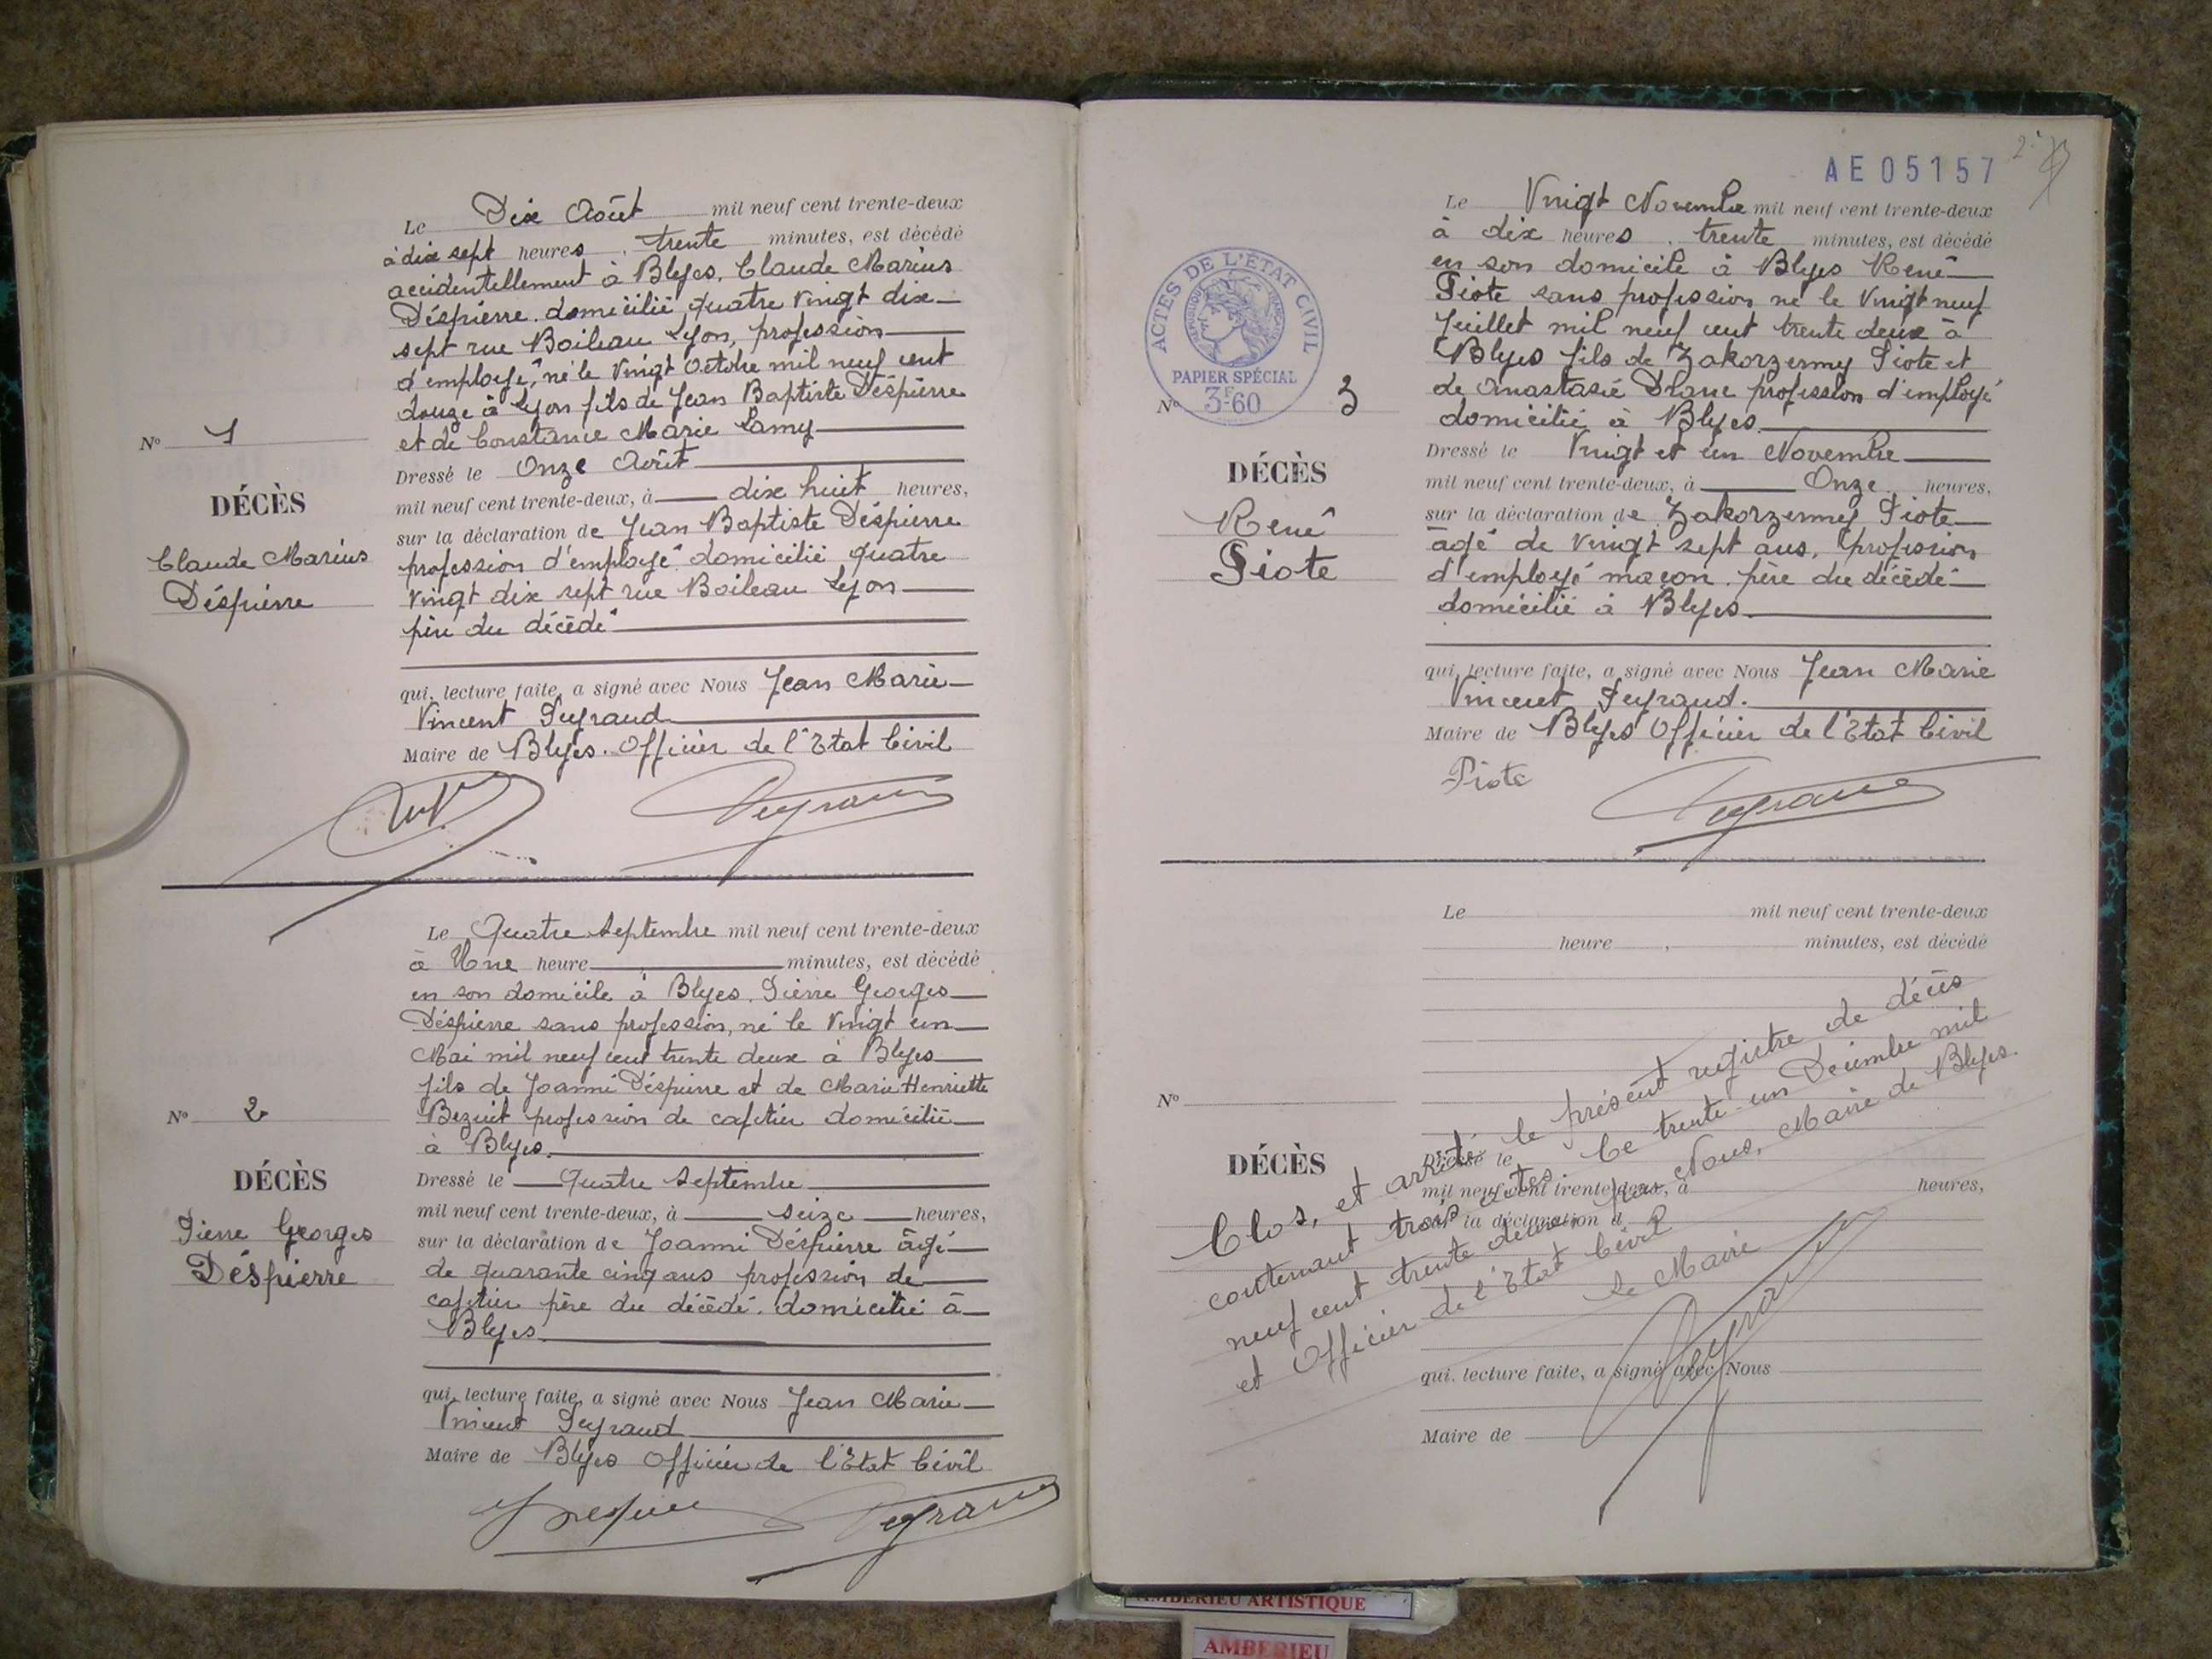 Le Dix Août mil neuf cent trente-deux
à dix sept heures, trente minutes, est décédé
accidentellement à Blyes, Claude Marius
Déspierre domicilié quatre vingt dix
sept rue Boileau Lyon, profession
d'employé, né le Vingt Octobre mil neuf cent
douze à Lyon fils de Jean Baptiste Déspierre
et de Constance Marie Lamy
Dressé le Onze Août
mil neuf cent trente-deux, à dix huit heures,
sur la déclaration de Jean Baptiste Déspierre
profession d'employé domicilié quatre
vingt dix sept rue Boileau Lyon
père du décédé
qui, lecture faite, a signé avec Nous Jean Marie
Vincent Peyraud
Maire de Blyes. Officier de l'Etat Civil
Peyraud
N° 1
DÉCÈS
Claude Marius
Déspierre
Le Quatre Septembre mil neuf cent trente-deux
à Une heure, minutes, est décédé
en son domicile à Blyes. Pierre Georges
Déspierre sans profession, né le Vingt un
Mai mil neuf cent trente deux à Blyes
fils de Joanni Déspierre et de Marie Henriette
profession de cafetier domicilié
à Blyes.
Dressé le Quatre Septembre
mil neuf cent trente-deux, à seize heures,
sur la déclaration de Joanni Déspierre âgé
de quarante cinq ans profession de
cafetier père du décédé. domicilié à
Blyes.
qui, lecture faite, a signé avec Nous Jean Marie
Vincent Peyraud
Maire de Blyes Officier de l'Etat Civil
Peyraud
N° 2
DÉCÈS
Pierre Georges
Déspierre
AE05157
Le Vingt Novembre mil neuf cent trente-deux
à dix heures, trente minutes, est décédé
en son domicile à Blyes René
Piote sans profession né le Vingt neuf
Juillet mil neuf cent trente deux à
Blyes fils de Zakorzermy Piote et
de Anastasie profession d'employé
domicilié à Blyes.
Dressé le Vingt et un Novembre
mil neuf cent trente-deux, à Onze heures,
sur la déclaration de Zakorzermy Piote
âgé de vingt sept ans, profession
d'employé maçon père du décédé
domicilié à Blyes.
qui, lecture faite, a signé avec Nous Jean Marie
Vincent Peyraud.
Maire de Blyes Officier de l'Etat Civil
Piote
Peyraud
ACTES DE L'ÉTAT CIVIL
RÉPUBLIQUE FRANÇAISE
PAPIER SPÉCIAL
3F60
N° 3
DÉCÈS
René
Piote
Le mil neuf cent trente-deux
heure, minutes, est décédé
N°
DÉCÈS
Dressé le
mil neuf cent trente-deux, à heures,
sur la déclaration d
qui, lecture faite, a signé avec Nous
Maire de
Clos, et arrêté le présent registre de décès
contenant trois actes le trente-un Décembre mil
neuf cent trente deux par Nous, Maire de Blyes.
et Officier de l'Etat Civil
Le Maire
Peyraud
AMBERIEU ARTISTIQUE
AMBERIEU